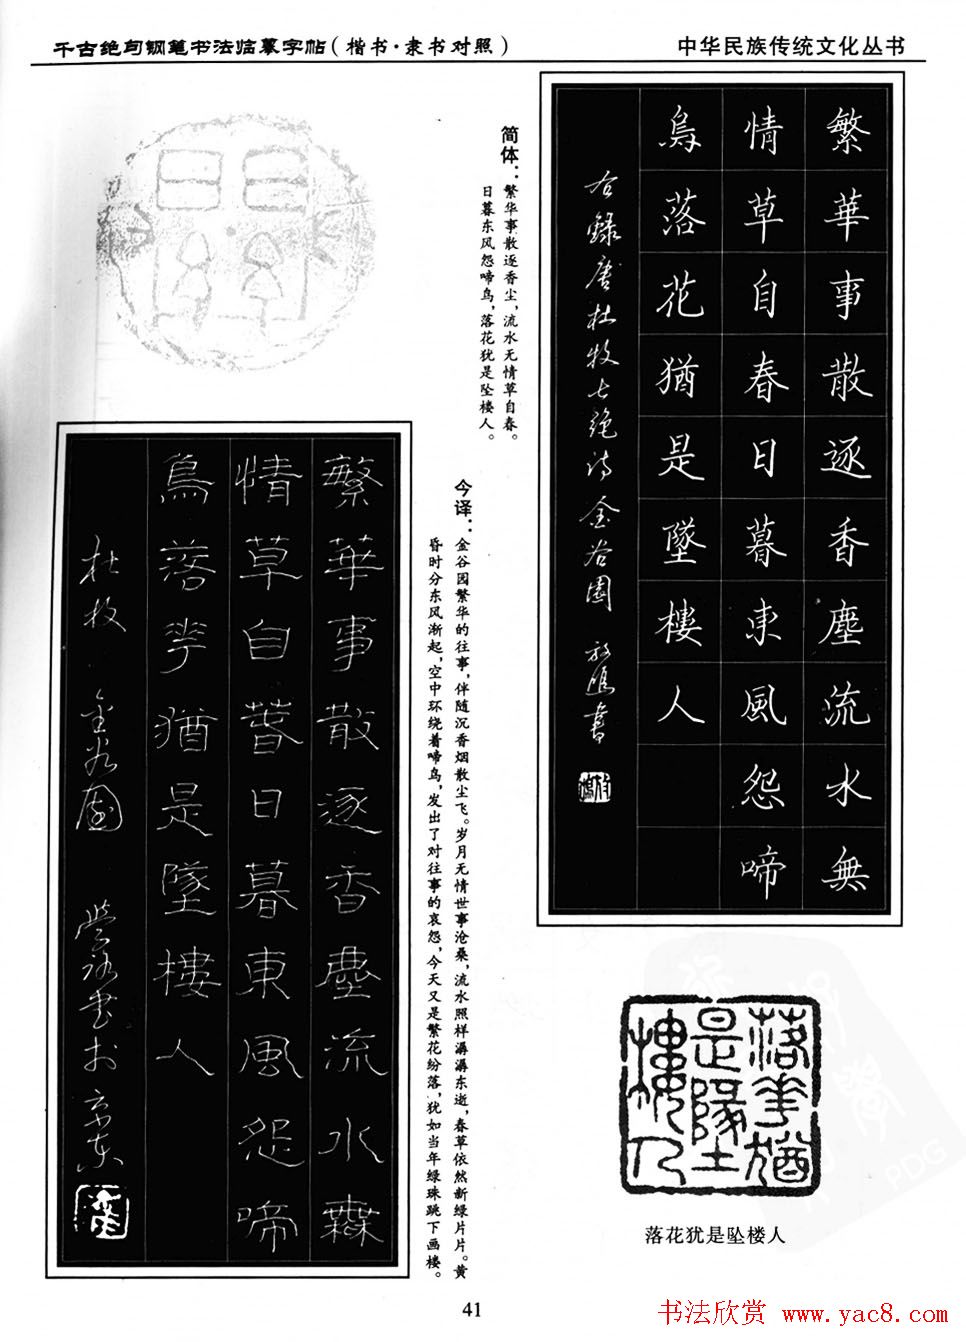 千古绝句钢笔书法临摹字帖(楷书·隶书对照)
中华民族传统文化丛书
繁華事散逐香塵流水無
情草自春日暮東風怨啼
鳥落花猶是墜樓人
右錄唐杜牧七絕詩金谷園 書
简体：繁华事散逐香尘，流水无情草自春。
日暮东风怨啼鸟，落花犹是坠楼人。
今译：金谷园繁华的往事，伴随沉香烟散尘飞。岁月无情世事沧桑，流水照样潺潺东逝，春草依然新绿片片。黄
昏时分东风渐起，空中环绕着啼鸟，发出了对往事的哀怨，今天又是繁花纷落，犹如当年绿珠跳下画楼。
繁華事散逐香塵流水無
情草自萅日暮東風怨啼
鳥落花猶是墜樓人
杜牧 金谷園 書於京東
落華猶
是墜
樓人
落花犹是坠楼人
PDG
41
书法欣赏 www.yac8.com